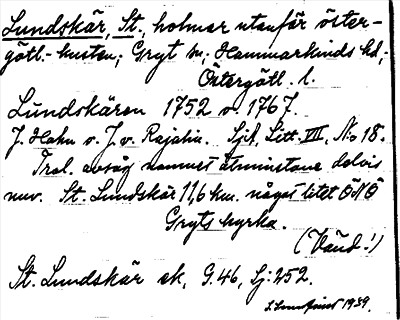 Lundskär, St. holmar utanför öster-
götl.-kusten; Gryt sn; Hammarkinds hd,
Östergötl. l.
Lundskären 1752 o. 1767.
J. Hahn o. J. v. Rajalin. Sjk, Litt. VII, No 18.
Trol. avsåg namnet åtminstone delvis
nuv. St. Lundskär 11,6 km. något litet ÖNÖ
Gryts kyrka.
(Vänd!)
St. Lundskär ek, G.46, Sj:252.
1939.